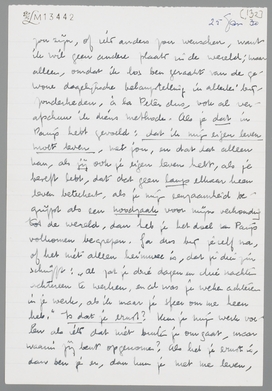 M13442 [132]
25 Jan
jou zijn, of iets anders jou wenschen, want
ik wil geen andere plaats in de wereld; maar
alleen, omdat ik los ben geraakt van de ge-
wone dagelijksche behandeling in allerlei bij-
zonderheden, à la Peter dus, ook al ver-
afschuw ik diens methode. Als je dat in
Parijs hebt gevoeld: dat ik mijn eigen leven
moet leven, met jou, en dat dat alleen
kan, als jij ook je eigen leven hebt, als je
beseft hebt, dat dat geen langs elkaar heen
leven beteekent, als je mijn eenzaamheid be-
grijpt als een noodzaak voor mijn verhouding
tot de wereld, dan heb je het doel van Parijs
volkomen begrepen. Ga dus bij jezelf na,
of het niet alleen heimwee is, dat je die zin
schrijft: "al zat je drie dagen en drie nachten
achtereen te werken, en al was je weken achter-
in je werk, als ik maar je sfeer om me heen
heb." Is dat je ernst? Kun je mijn werk voe-
len als iets dat niet buiten je omgaat, maar
waarin jij bent opgenomen? Als het je ernst is,
dan ben je er, dan kun je met me leven,